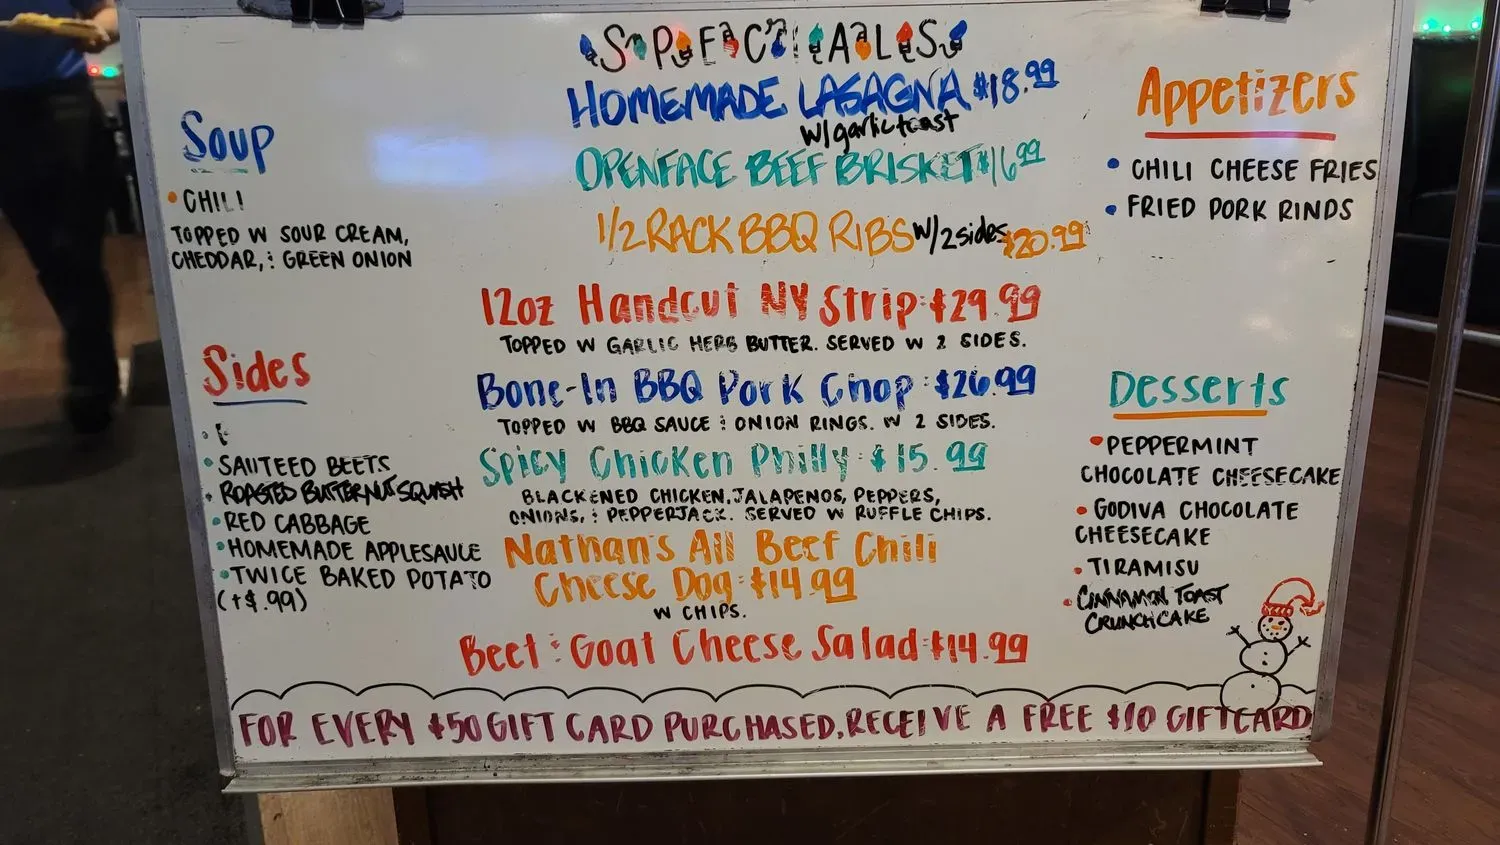 SPECIALS
HOMEMADE LASAGNA $18.99
w/garlic toast
OPENFACE BEEF BRISKET $16.99
1/2 RACK BBQ RIBS w/2 sides $20.99
12oz Handcut NY Strip: $29.99
TOPPED W GARLIC HERB BUTTER. SERVED W 2 SIDES.
Bone-In BBQ Pork Chop: $26.99
TOPPED W BBQ SAUCE & ONION RINGS. W 2 SIDES.
Spicy Chicken Philly: $15.99
BLACKENED CHICKEN, JALAPENOS, PEPPERS,
ONIONS, & PEPPERJACK. SERVED W RUFFLE CHIPS.
Nathan's All Beef Chili
Cheese Dog: $14.99
W CHIPS.
Beet & Goat Cheese Salad: $14.99
Soup
• CHILI
TOPPED W SOUR CREAM,
CHEDDAR, & GREEN ONION
Sides
• SAUTEED BEETS
• ROASTED BUTTERNUT SQUASH
• RED CABBAGE
• HOMEMADE APPLESAUCE
• TWICE BAKED POTATO
(+$.99)
Appetizers
• CHILI CHEESE FRIES
• FRIED PORK RINDS
Desserts
• PEPPERMINT
CHOCOLATE CHEESECAKE
• GODIVA CHOCOLATE
CHEESECAKE
• TIRAMISU
• CINNAMON TOAST
CRUNCH CAKE
FOR EVERY $50 GIFT CARD PURCHASED, RECEIVE A FREE $10 GIFTCARD